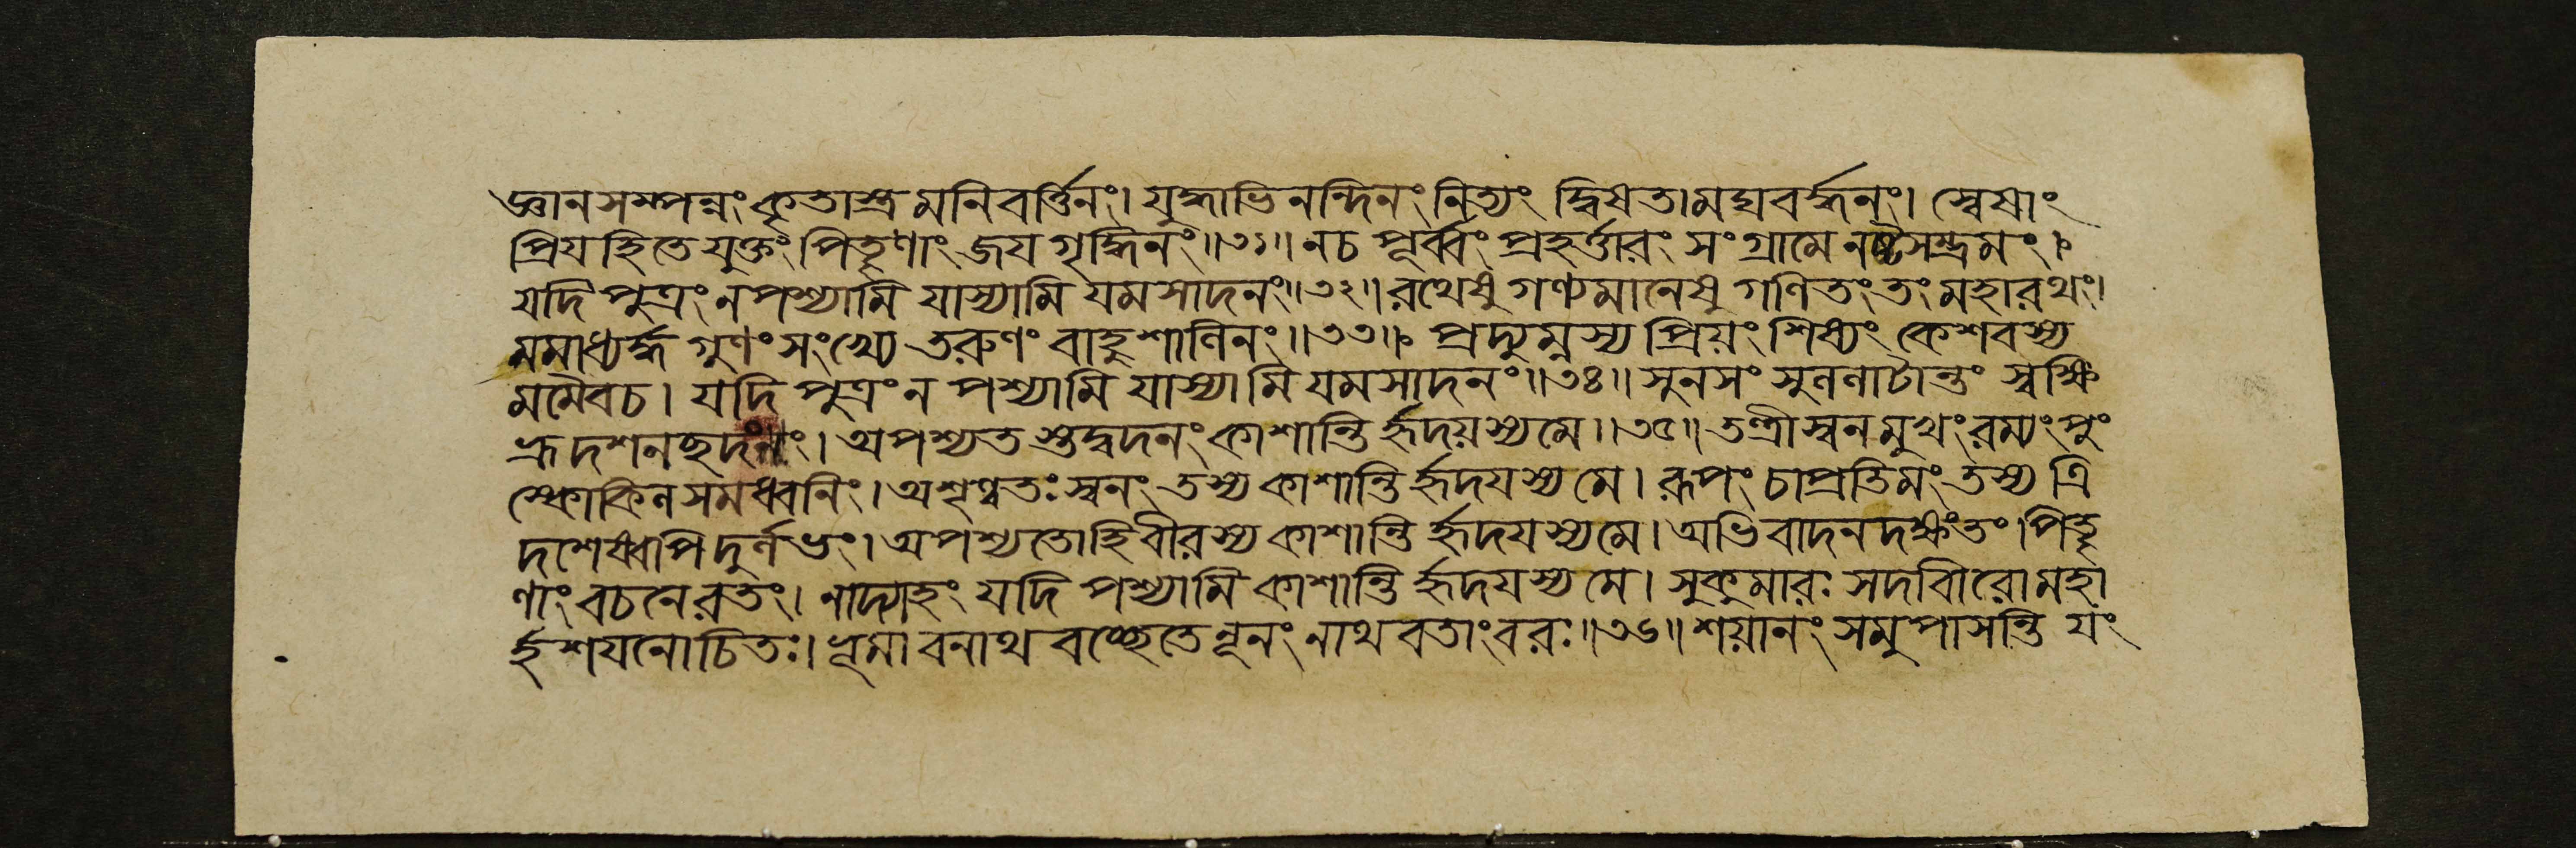 জ্ঞানসম্পন্নং কৃতাস্ত্রমনিবর্ত্তিনং। যুদ্ধাভিনন্দিনং নিত্যং দ্বিষতামঘবর্দ্ধনং। স্বেষাং
প্রিযহিতে যুক্তং পিতৄণাং জযগৃদ্ধিনং॥৩১॥ ন চ পূর্ব্বং প্রহর্ত্তারং সংগ্রামে নষ্টসম্ভ্রমং।
যদি পুত্রং ন পশ্যামি যাস্যামি যমসাদনং॥৩২॥ রথেষু গণ্যমানেষু গণিতং তং মহারথং।
মমাধ্যর্দ্ধগুণং সংখ্যে তরুণং বাহুশালিনং॥৩৩॥ প্রদ্যুম্নস্য প্রিয়ং শিষ্যং কেশবস্য
মমৈব চ। যদি পুত্রং ন পশ্যামি যাস্যামি যমসাদনং॥৩৪॥ সুনসং সুললাটান্তং স্বক্ষি
ভ্রূদশনছদনং। অপশ্যত শুদ্বদনং কা শান্তি র্হৃদয়স্য মে॥৩৫॥ তন্ত্রীস্বনমুখং রম্যং পুং
স্কোকিলসমধ্বনিং। অশৃণ্বতঃ স্বনং তস্য কা শান্তি র্হৃদযস্য মে। রূপং চাপ্রতিমং তস্য ত্রি
দশেষ্বপি দুর্লভং। অপশ্যতো হি বীরস্য কা শান্তি র্হৃদযস্য মে। অভিবাদনদক্ষং তং পিতৄ
ণাং বচনে রতং। নাদ্যাহং যদি পশ্যামি কা শান্তি র্হৃদযস্য মে। সুকুমারঃ সদা বীরো মহা
র্হশযনোচিতঃ। ভূমাবনাথবচ্ছেতে নূনং নাথবতাং বরঃ॥৩৬॥ শয়ানং সমুপাসন্তি যং